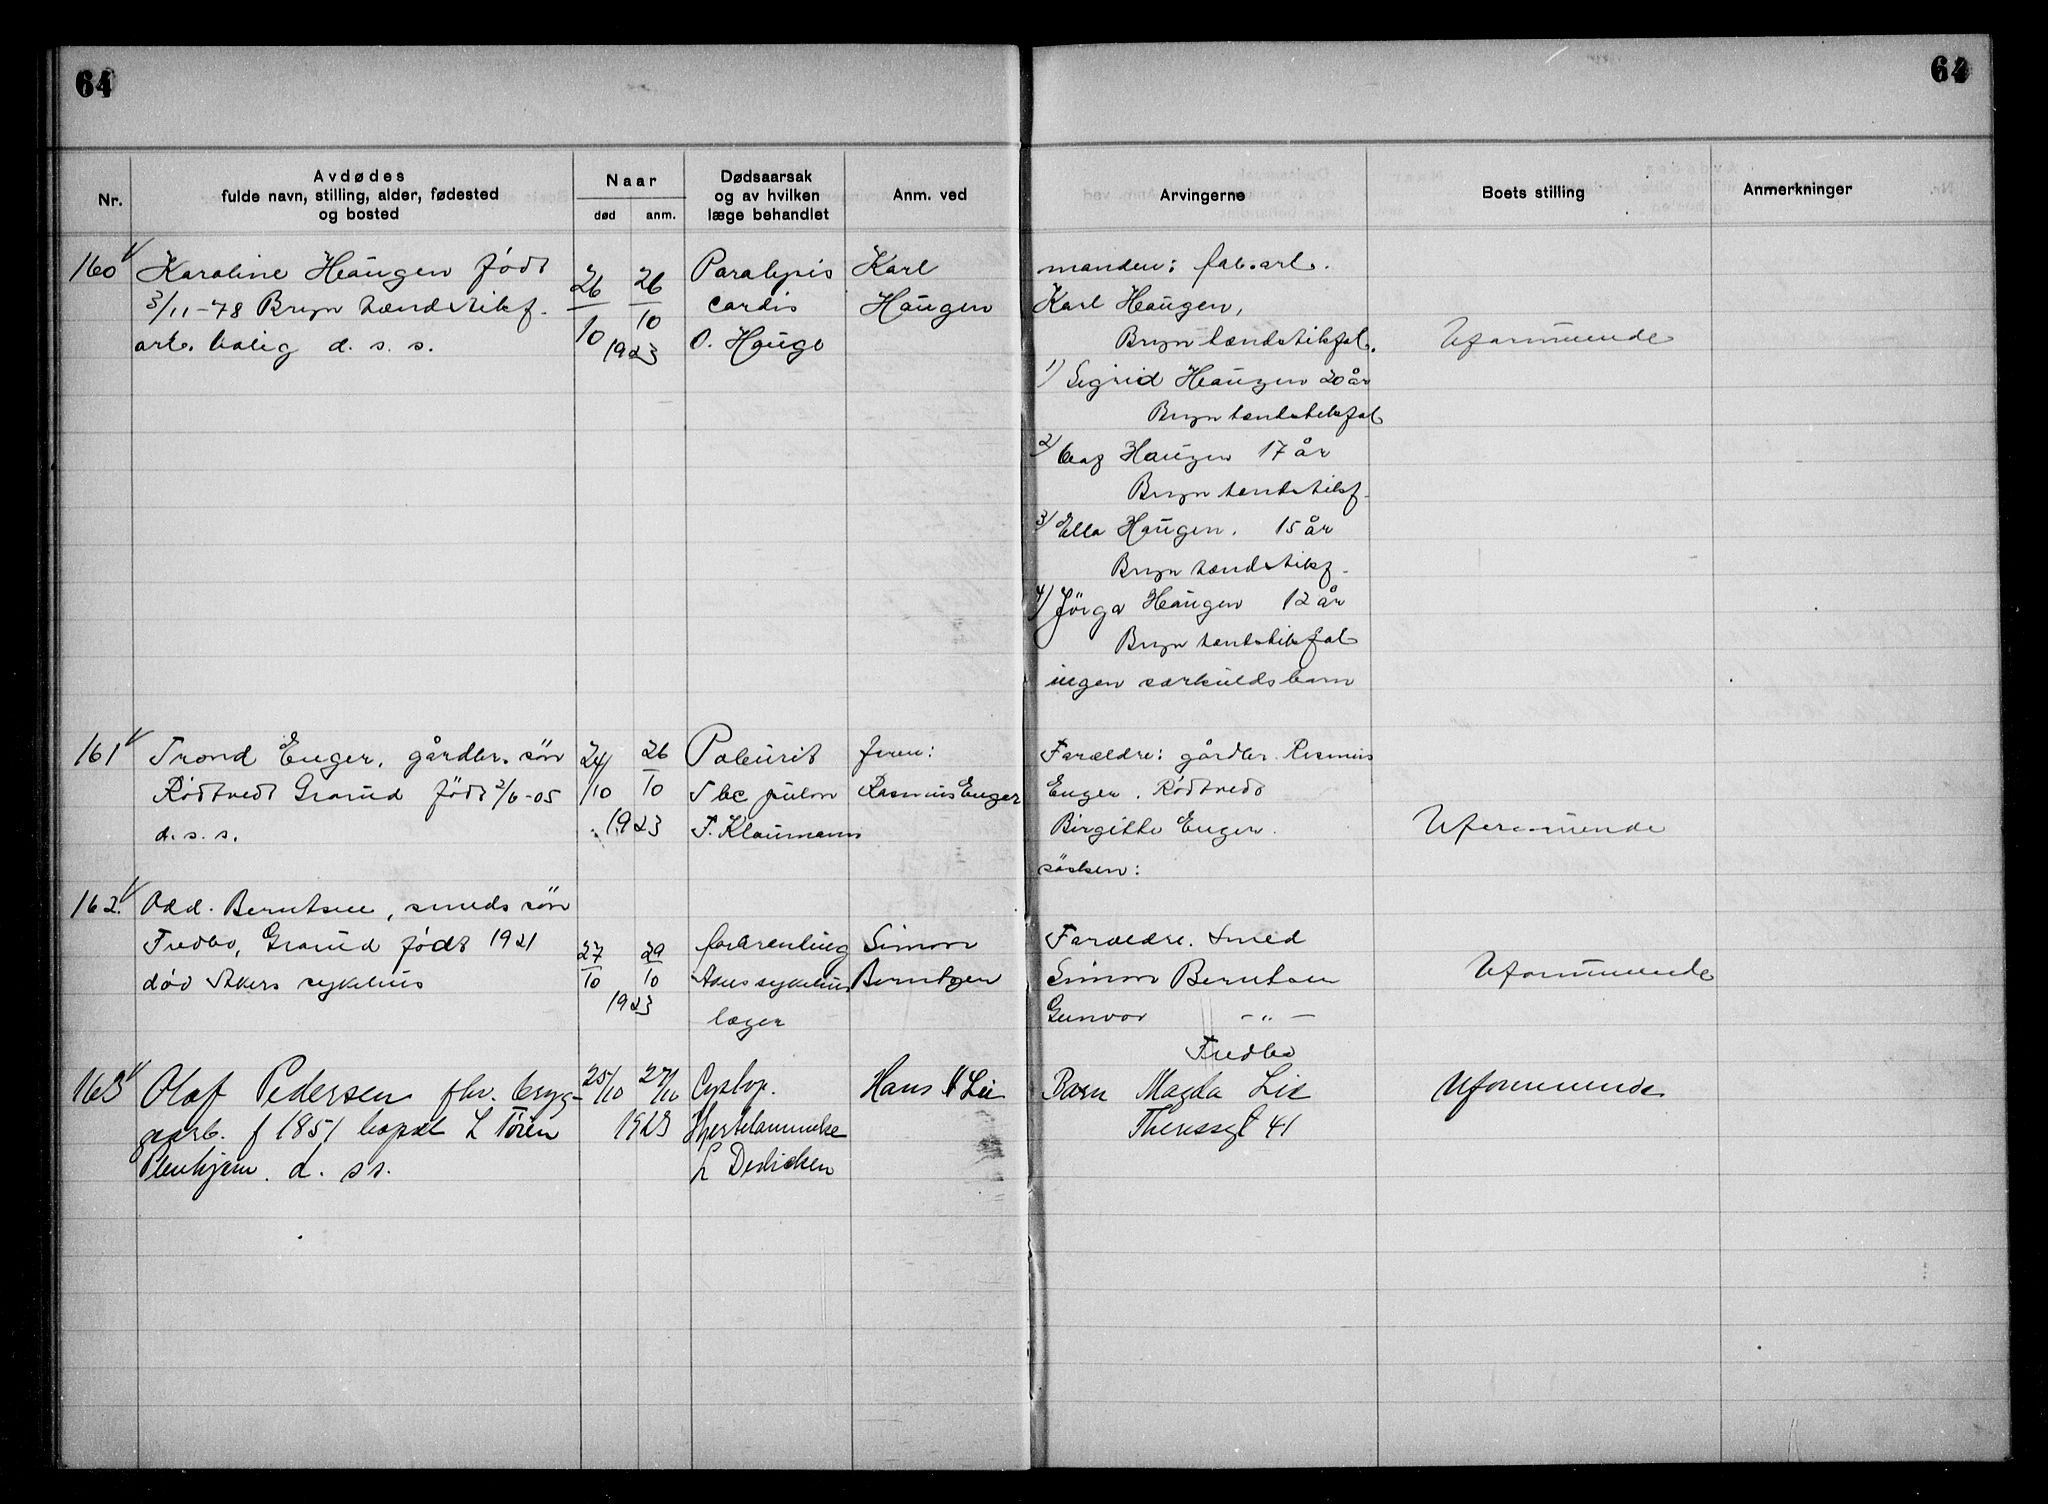 64
64
Nr.
Avdødes
fulde navn, stilling, alder, fødested
og bosted
Naar
død
anm.
Dødsaarsak
og av hvilken
læge behandlet
Anm. ved
Arvingerne
Boets stilling
Anmerkninger
160
Karoline Haugen født
3/11-78 Bryn tændstikf.
arb. bolig d. s. s.
26
10
26
10
1923
Paralysis
cordis
O. Hauge
Karl
Haugen
manden: fab.arb.
Karl Haugen,
Bryn tændstikfab.
1) Sigrid Haugen 20 år
Bryn tændstikfab
2) Haugen 17 år
Bryn tændstikf.
3) Ella Haugen. 15 år
Bryn tændstikf.
4) Haugen 12 år
Bryn tændstikfab
ingen særkuldsbarn
Uformuende
161
Trond Enger, gårdbr. søn
Rödtvedt Grorud født 2/6-05
d. s. s.
24
/10
26
10
1923
Tbc pulm
T. Klaumann
faren:
Rasmus Enger
Forældre: gårdbr. Rasmus
Enger. Rödtvedt
Birgitte Enger.
søsken:
Uformuende
162.
Odd. Berntsen, smeds søn
Fredbo, Grorud født 1921
død Akers sykehus
27
10
29
10
1923
forbrænding
Akers sykehus
læger
Simon
Berntzen
Forældre. Smed
Simon Berntsen
Gunvor -"-
Fredbo
Uformuende
163
Olaf Pedersen fhv. bryg-
garb. f 1851 bopæl L Tøien
Pleiehjem. d. s s.
25/10
27/10
1923
Cystop.
Hjertelammelse
L Dedichen
Hans N Lie
Barn Magda Lie
Theresesgt 41
Uformuende